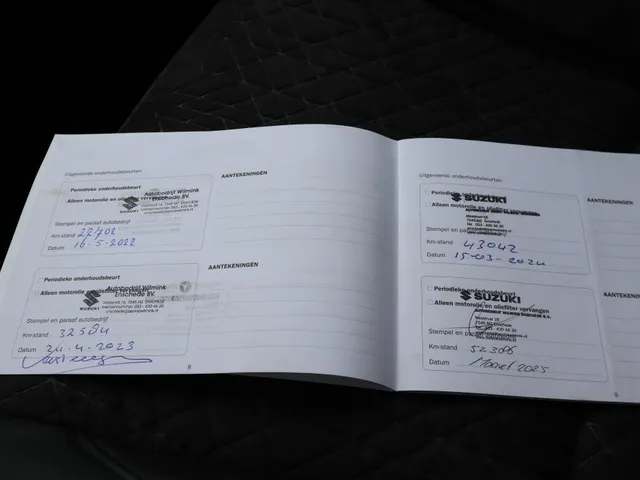 Uitgevoerde onderhoudsbeurten
Periodieke onderhoudsbeurt
Alleen motorolie en oliefilter vervangen
Autobedrijf Wilmink
Enschede BV.
SUZUKI
Stempel en paraaf autobedrijf
Km-stand
Datum 16-5-2022
AANTEKENINGEN
Periodieke onderhoudsbeurt
Alleen motorolie en oliefilter vervangen
Autobedrijf Wilmink
Enschede BV.
SUZUKI
Stempel en paraaf autobedrijf
Km-stand 32584
Datum 24-4-2023
AANTEKENINGEN
8
Uitgevoerde onderhoudsbeurten
Periodieke
SUZUKI
Alleen motorolie en oliefilter
Stempel en paraaf
Km-stand 43042
Datum 15-03-2024
AANTEKENINGEN
Periodieke
SUZUKI
Alleen motorolie en oliefilter vervangen
Stempel en
Km-stand
Datum Maart 2025
AANTEKENINGEN
9